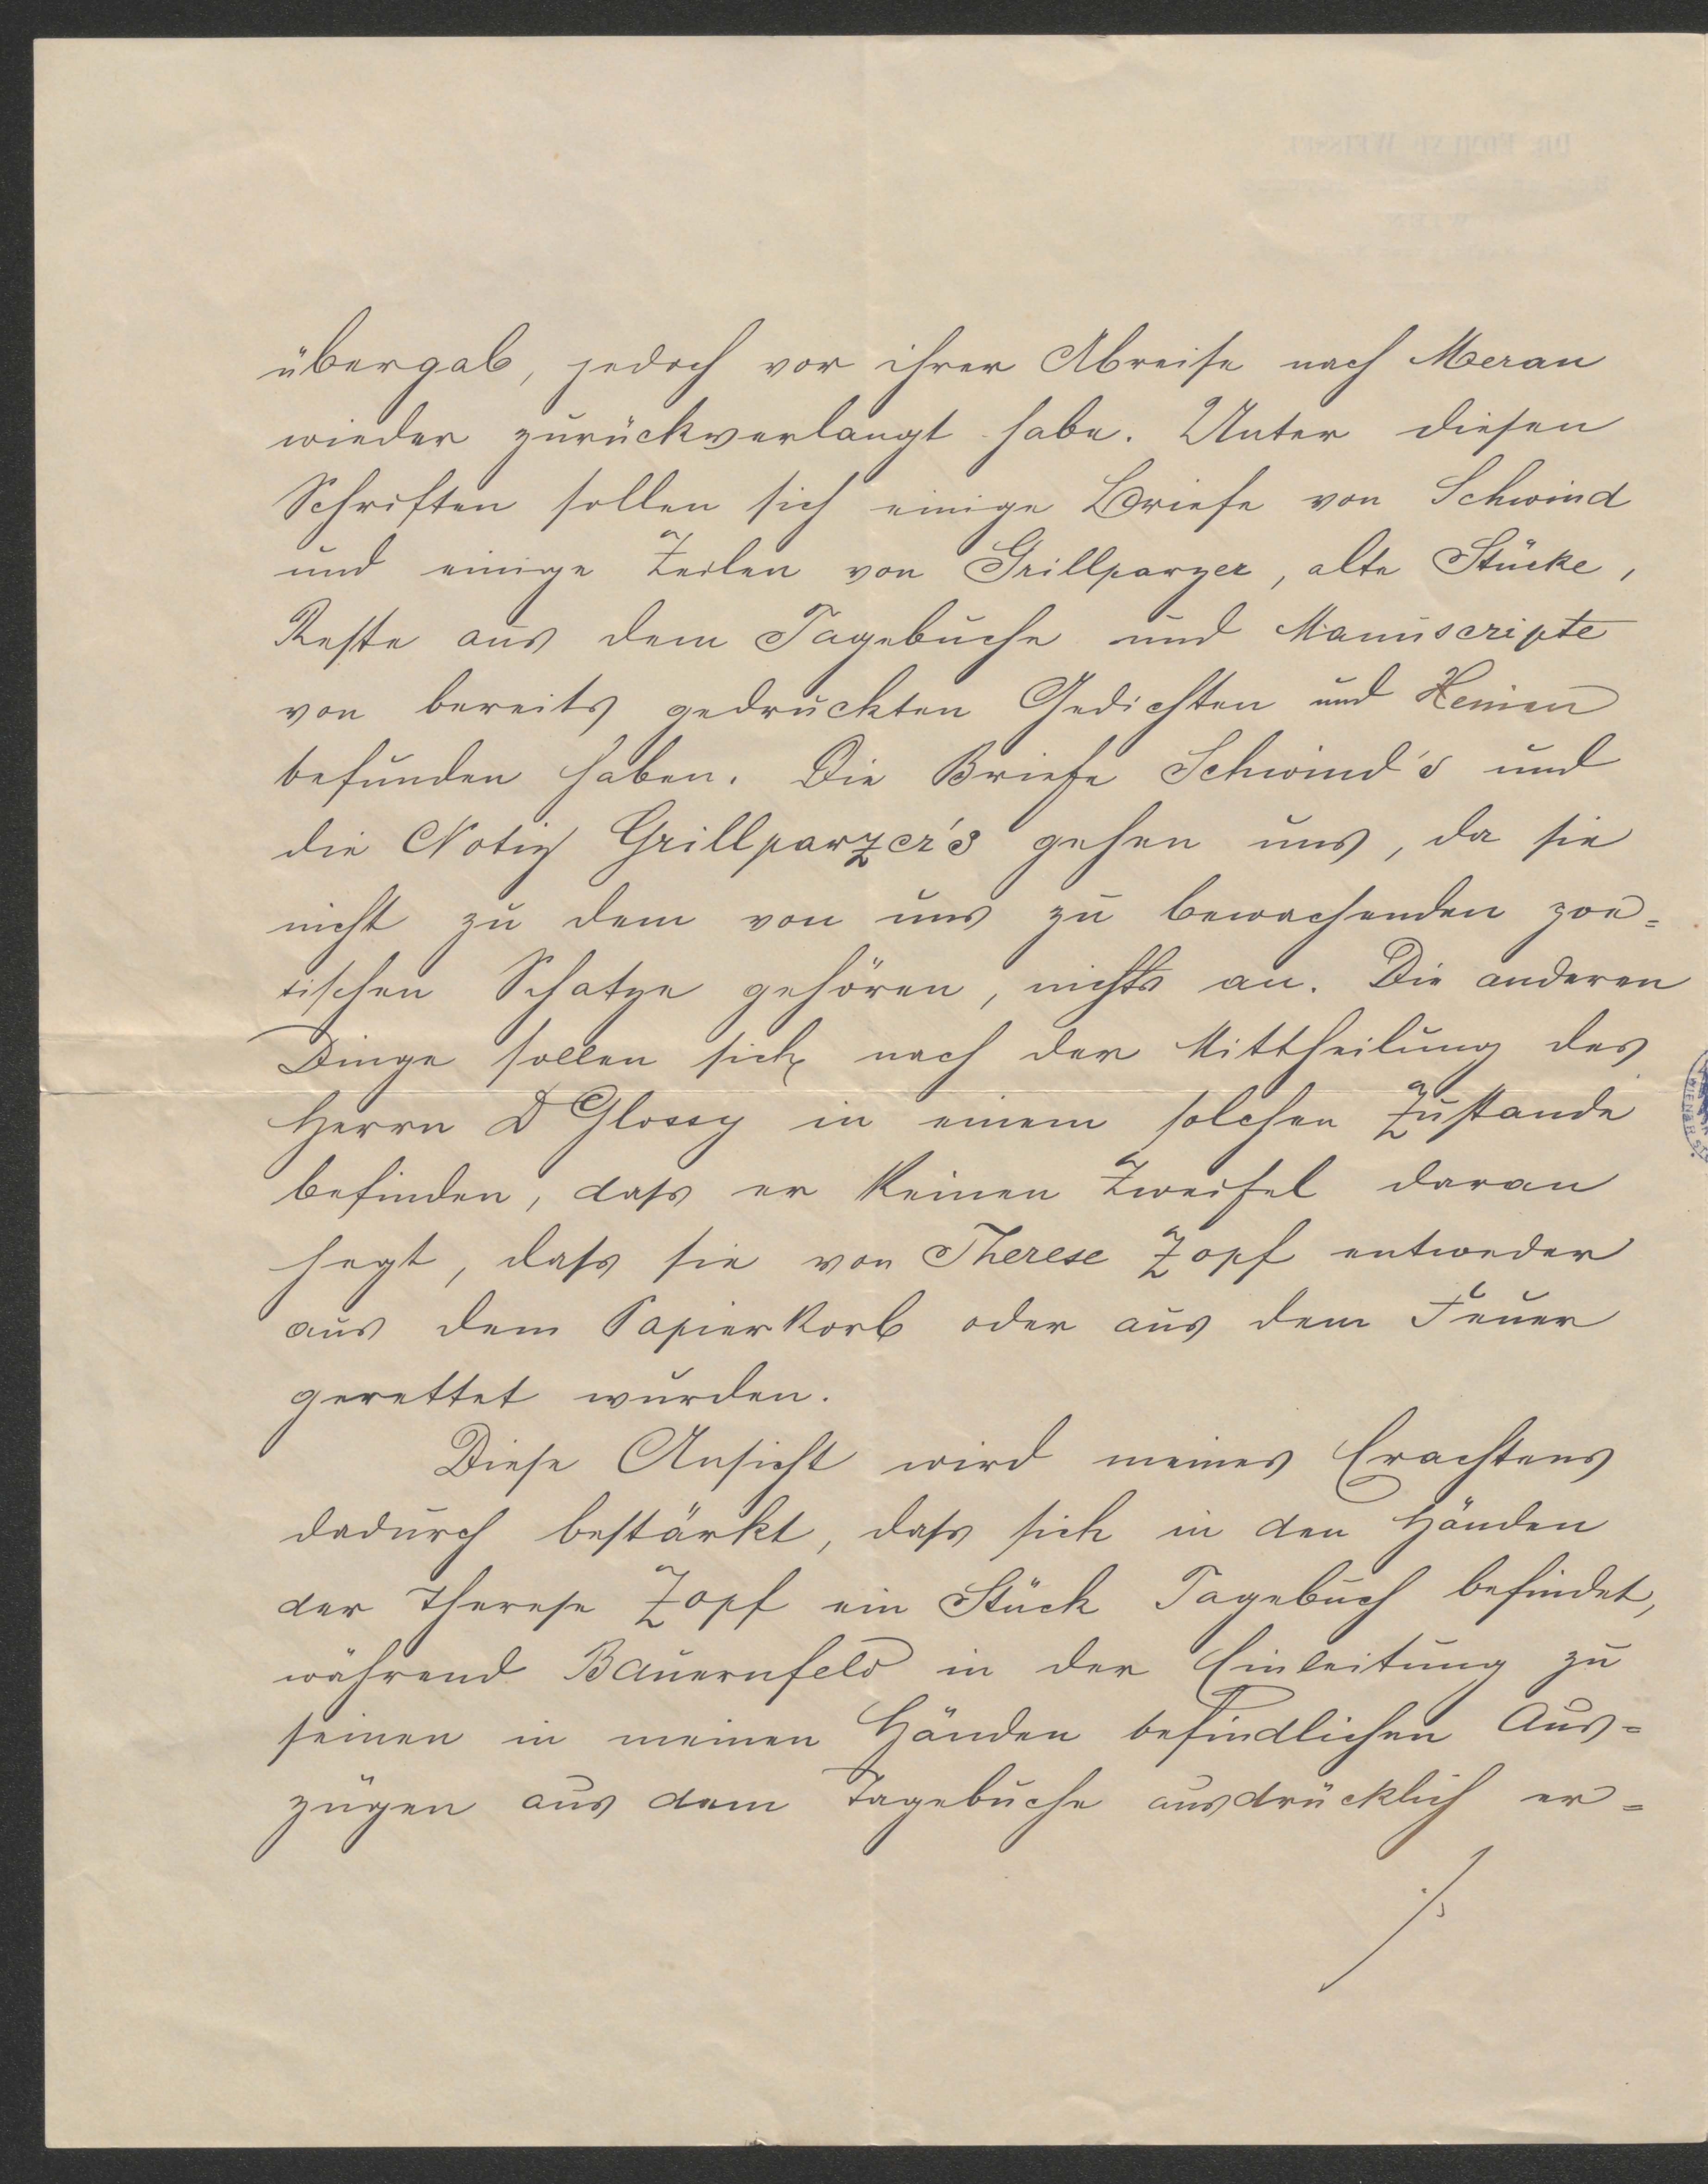 übergab, jedoch vor ihrer Abreise nach Meran
wieder zurückverlangt habe. Unter diesen
Schriften sollen sich einige Briefe von Schwind
und einige Zeilen von Grillparzer, alte Stücke,
Reste aus dem Tagebuche und Manuscripte
von bereits gedruckten Gedichten und
befunden haben. Die Briefe Schwind's und
die Notiz Grillparzer's gehen uns, da sie
nicht zu dem von uns zu bewachenden poe=
tischen Schatze gehören, nichts an. Die anderen
Dinge sollen sich nach der Mittheilung des
Herrn D Glossy in einem solchen Zustande
befinden, dass er keinen Zweifel daran
hegt, dass sie von Therese Zopf entweder
aus dem Papierkorb oder aus dem Feuer
gerettet wurden.
Diese Ansicht wird meines Erachtens
dadurch bestärkt, dass sich in den Händen
der Therese Zopf ein Stück Tagebuch befindet,
während Bauernfeld in der Einleitung zu
seinen in meinen Händen befindlichen Aus=
zügen aus dem Tagebuche ausdrücklich er=
./.